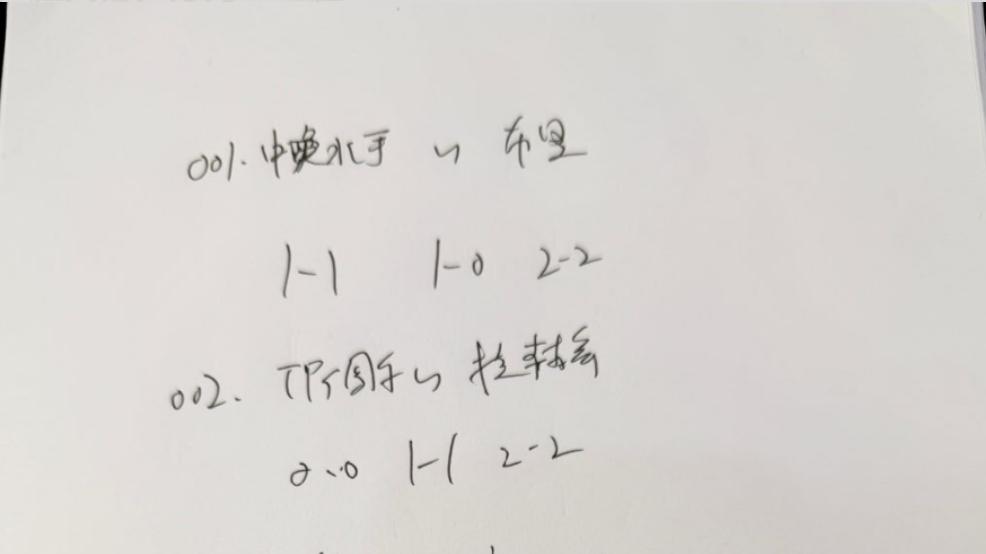 001.中央水手 vs 布里
1-1 1-0 2-2
002. TPS图尔 vs 拉赫蒂
0-0 1-1 2-2